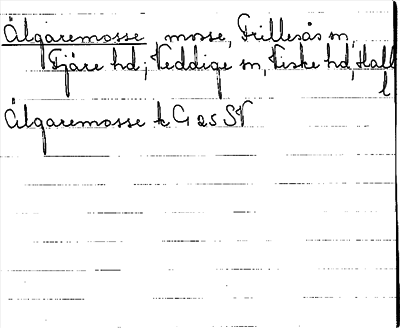 Älgaremosse mosse, Frillesås sn,
Fjäre hd; Veddige sn, Viske hd, Hall
l
Älgaremosse k G 25 SV